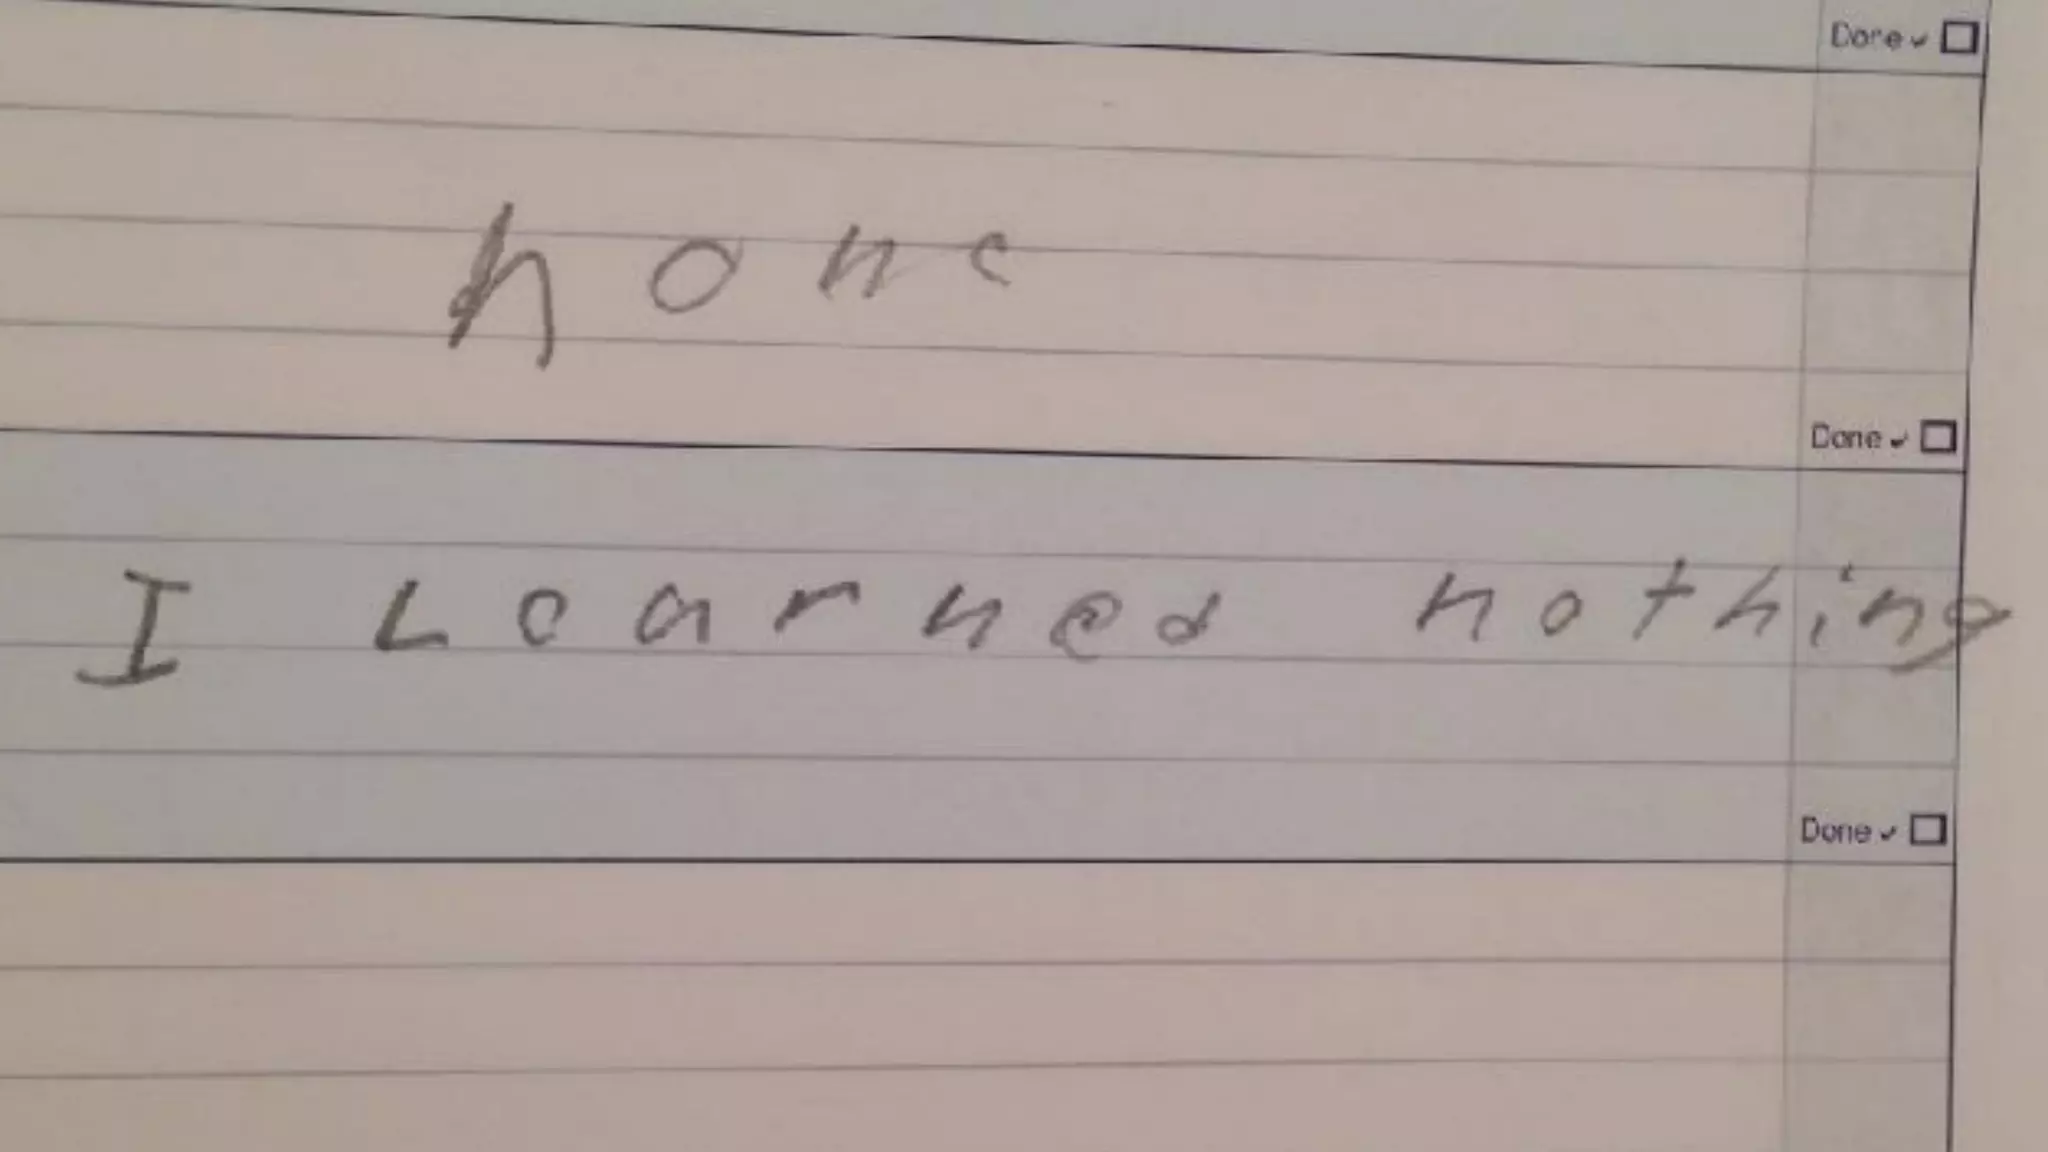 Done ✓ ☐
none
Done ✓ ☐
I Learned nothing
Done ✓ ☐